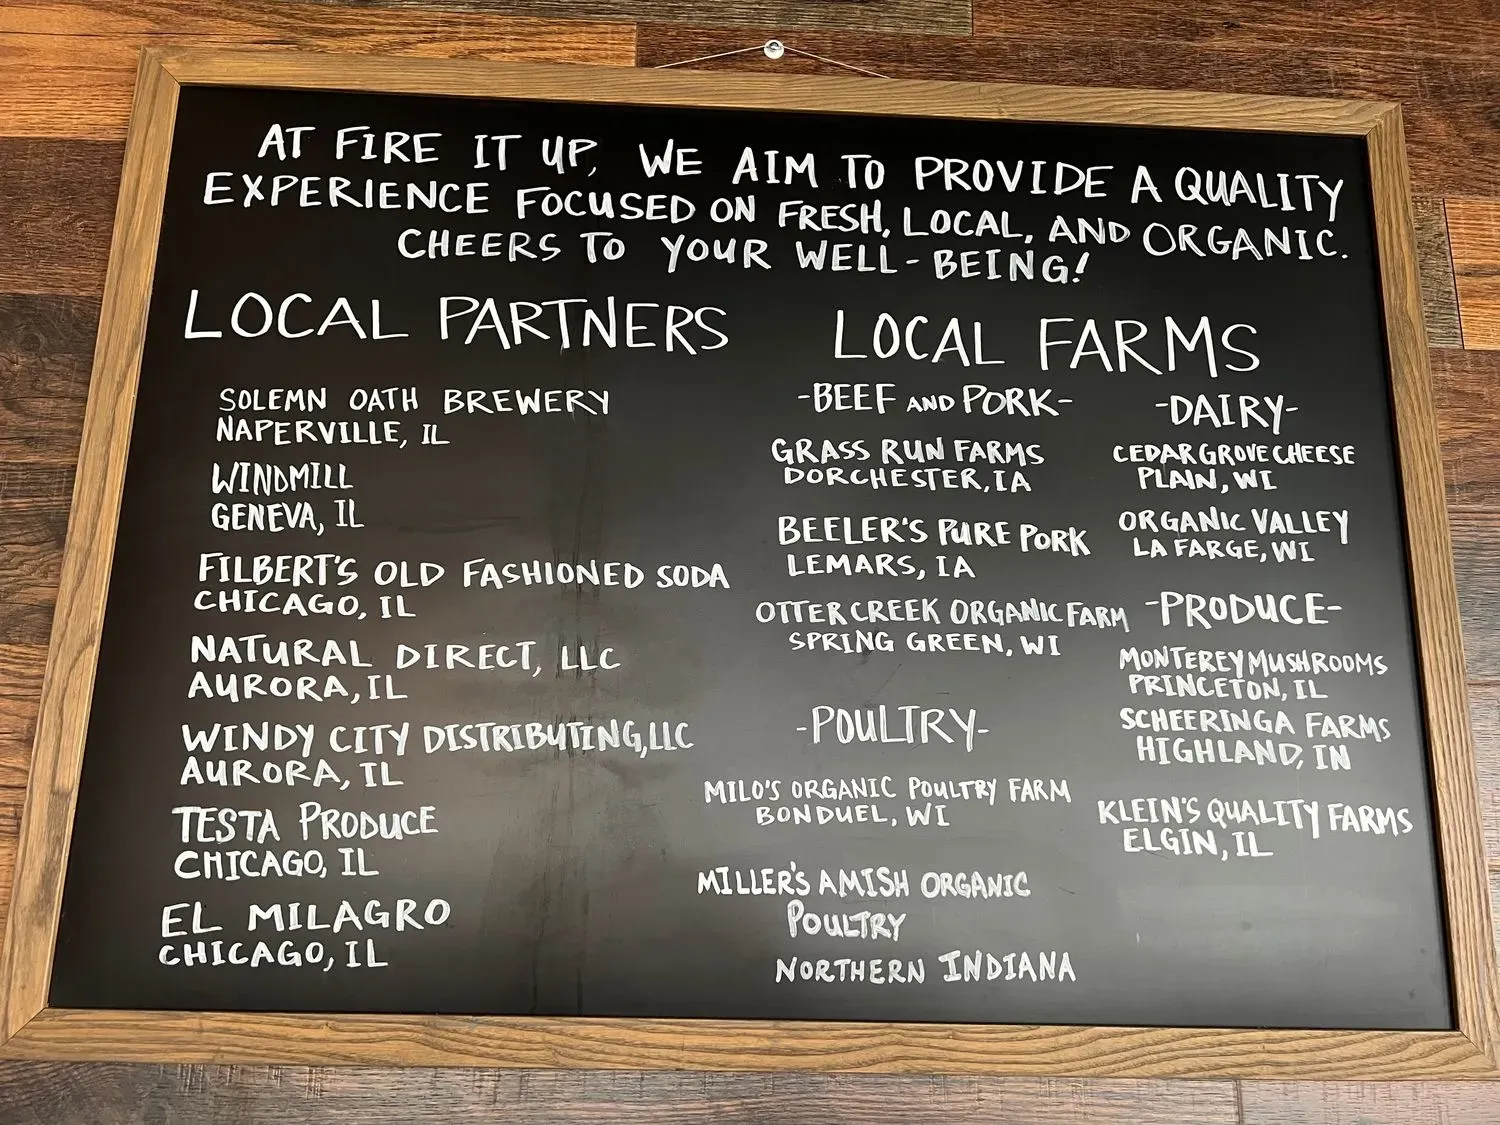 AT FIRE IT UP, WE AIM TO PROVIDE A QUALITY
EXPERIENCE FOCUSED ON FRESH, LOCAL, AND ORGANIC.
CHEERS TO YOUR WELL-BEING!
LOCAL PARTNERS
SOLEMN OATH BREWERY
NAPERVILLE, IL
WINDMILL
GENEVA, IL
FILBERT'S OLD FASHIONED SODA
CHICAGO, IL
NATURAL DIRECT, LLC
AURORA, IL
WINDY CITY DISTRIBUTING, LLC
AURORA, IL
TESTA PRODUCE
CHICAGO, IL
EL MILAGRO
CHICAGO, IL
LOCAL FARMS
-BEEF AND PORK-
GRASS RUN FARMS
DORCHESTER, IA
BEELER'S PURE PORK
LEMARS, IA
OTTER CREEK ORGANIC FARM
SPRING GREEN, WI
-POULTRY-
MILO'S ORGANIC POULTRY FARM
BONDUEL, WI
MILLER'S AMISH ORGANIC
POULTRY
NORTHERN INDIANA
-DAIRY-
CEDAR GROVE CHEESE
PLAIN, WI
ORGANIC VALLEY
LA FARGE, WI
-PRODUCE-
MONTEREY MUSHROOMS
PRINCETON, IL
SCHEERINGA FARMS
HIGHLAND, IN
KLEIN'S QUALITY FARMS
ELGIN, IL